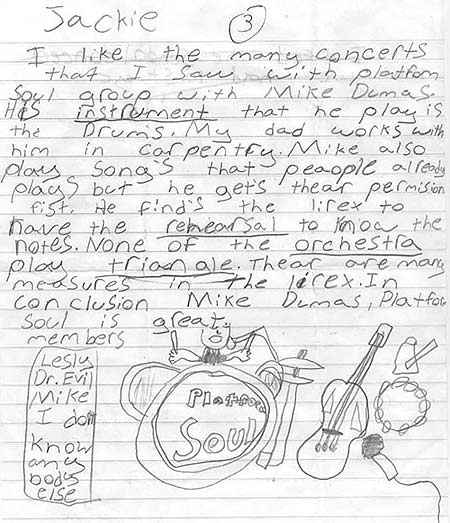 Jackie
3
I like the many concerts
that I saw with platfom
Soul group with Mike Dumas.
His instrument that he play is
the Drum's. My dad works with
him in carpentry. Mike also
play song's that peaople already
plays but he get's thear permision
fist. He find's the lirex to
have the rehearsal to know the
notes. None of the orchestra
play triangle. Thear are many
measures in the lirex. In
conclusion Mike Dumas, Platfom
Soul is great
members
Lesly
Dr. Evil
Mike
I don't
Know
any
body
else
Platform
Soul